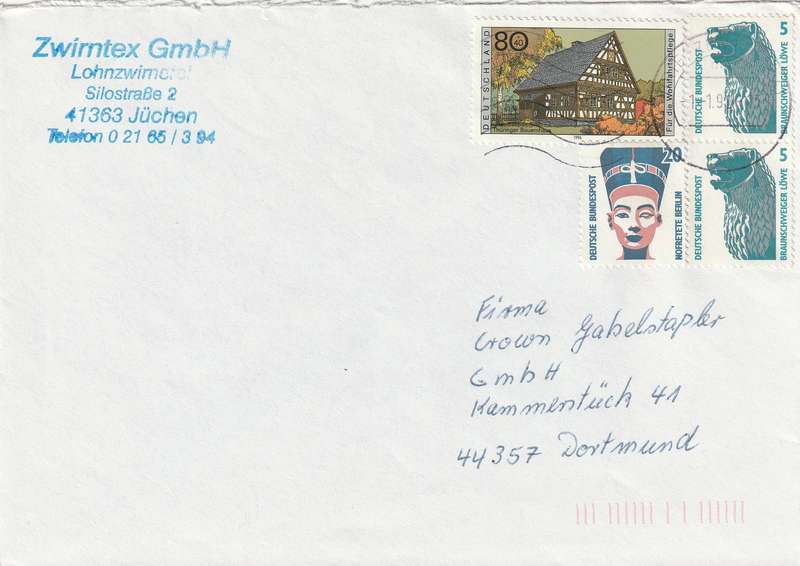 Zwirntex GmbH
Lohnzwirnerei
Silostraße 2
41363 Jüchen
Telefon 0 21 65 / 3 94
80+40
DEUTSCHLAND
Für die Wohlfahrtspflege
Thüringer Bauernhaus
1996
5
DEUTSCHE BUNDESPOST
BRAUNSCHWEIGER LÖWE
20
DEUTSCHE BUNDESPOST
NOFRETETE BERLIN
5
DEUTSCHE BUNDESPOST
BRAUNSCHWEIGER LÖWE
Firma
Crown Gabelstapler
GmbH
Kammerstück 41
44357 Dortmund